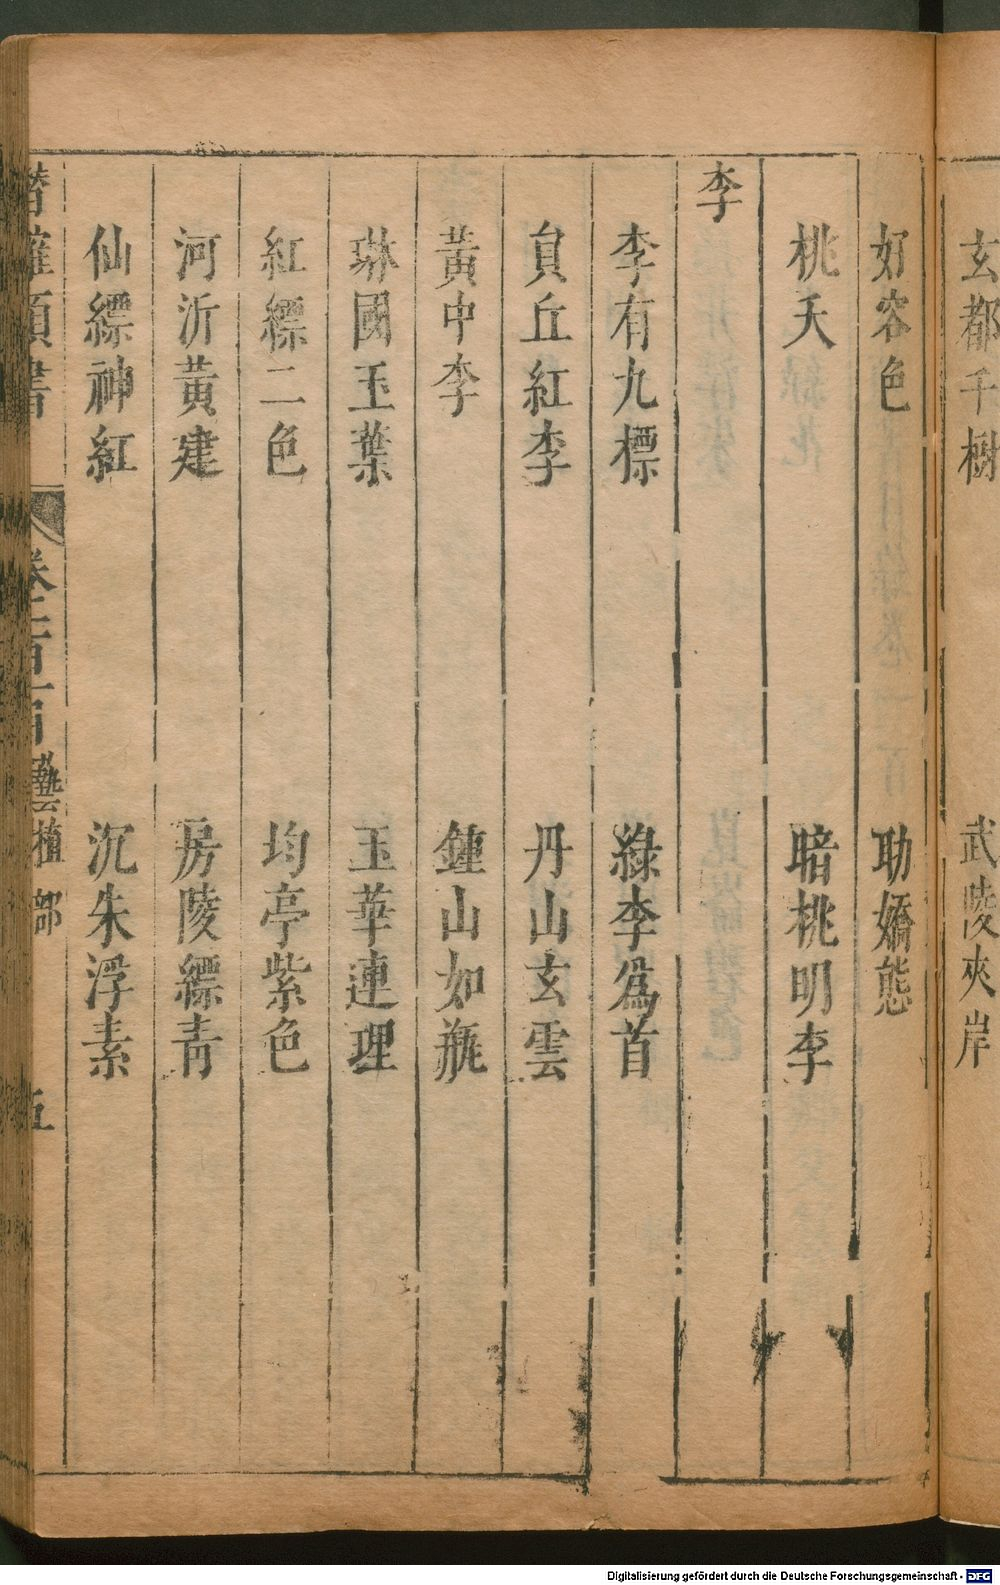 玄都千樹 武陵夾岸
好容色 助嬌態
桃夭 暗桃明李
李
李有九標 綠李爲首
員丘紅李 丹山玄雲
黃中李 鍾山如瓶
琳國玉葉 玉華連理
紅縹二色 均亭紫色
河沂黃建 房陵縹青
仙縹神紅 沉朱浮素
潛確類書 卷一百 藝植部 五
Digitalisierung gefördert durch die Deutsche Forschungsgemeinschaft - DFG